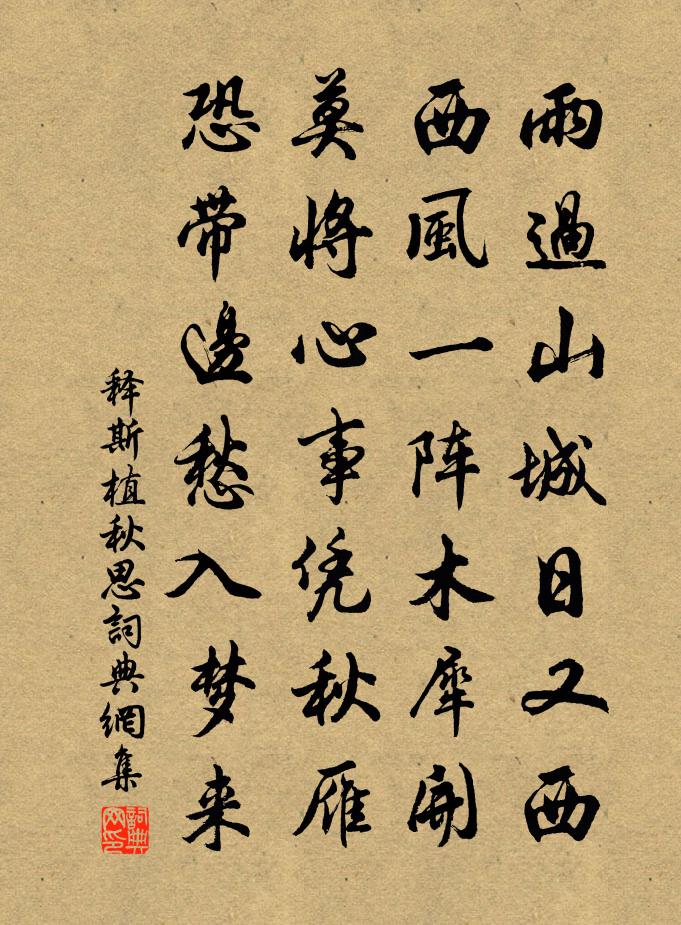 雨過山城日又西
西風一阵木犀開
莫将心事凭秋雁
恐帶邊愁入梦来
释斯植秋思詞典網集
詞典网印